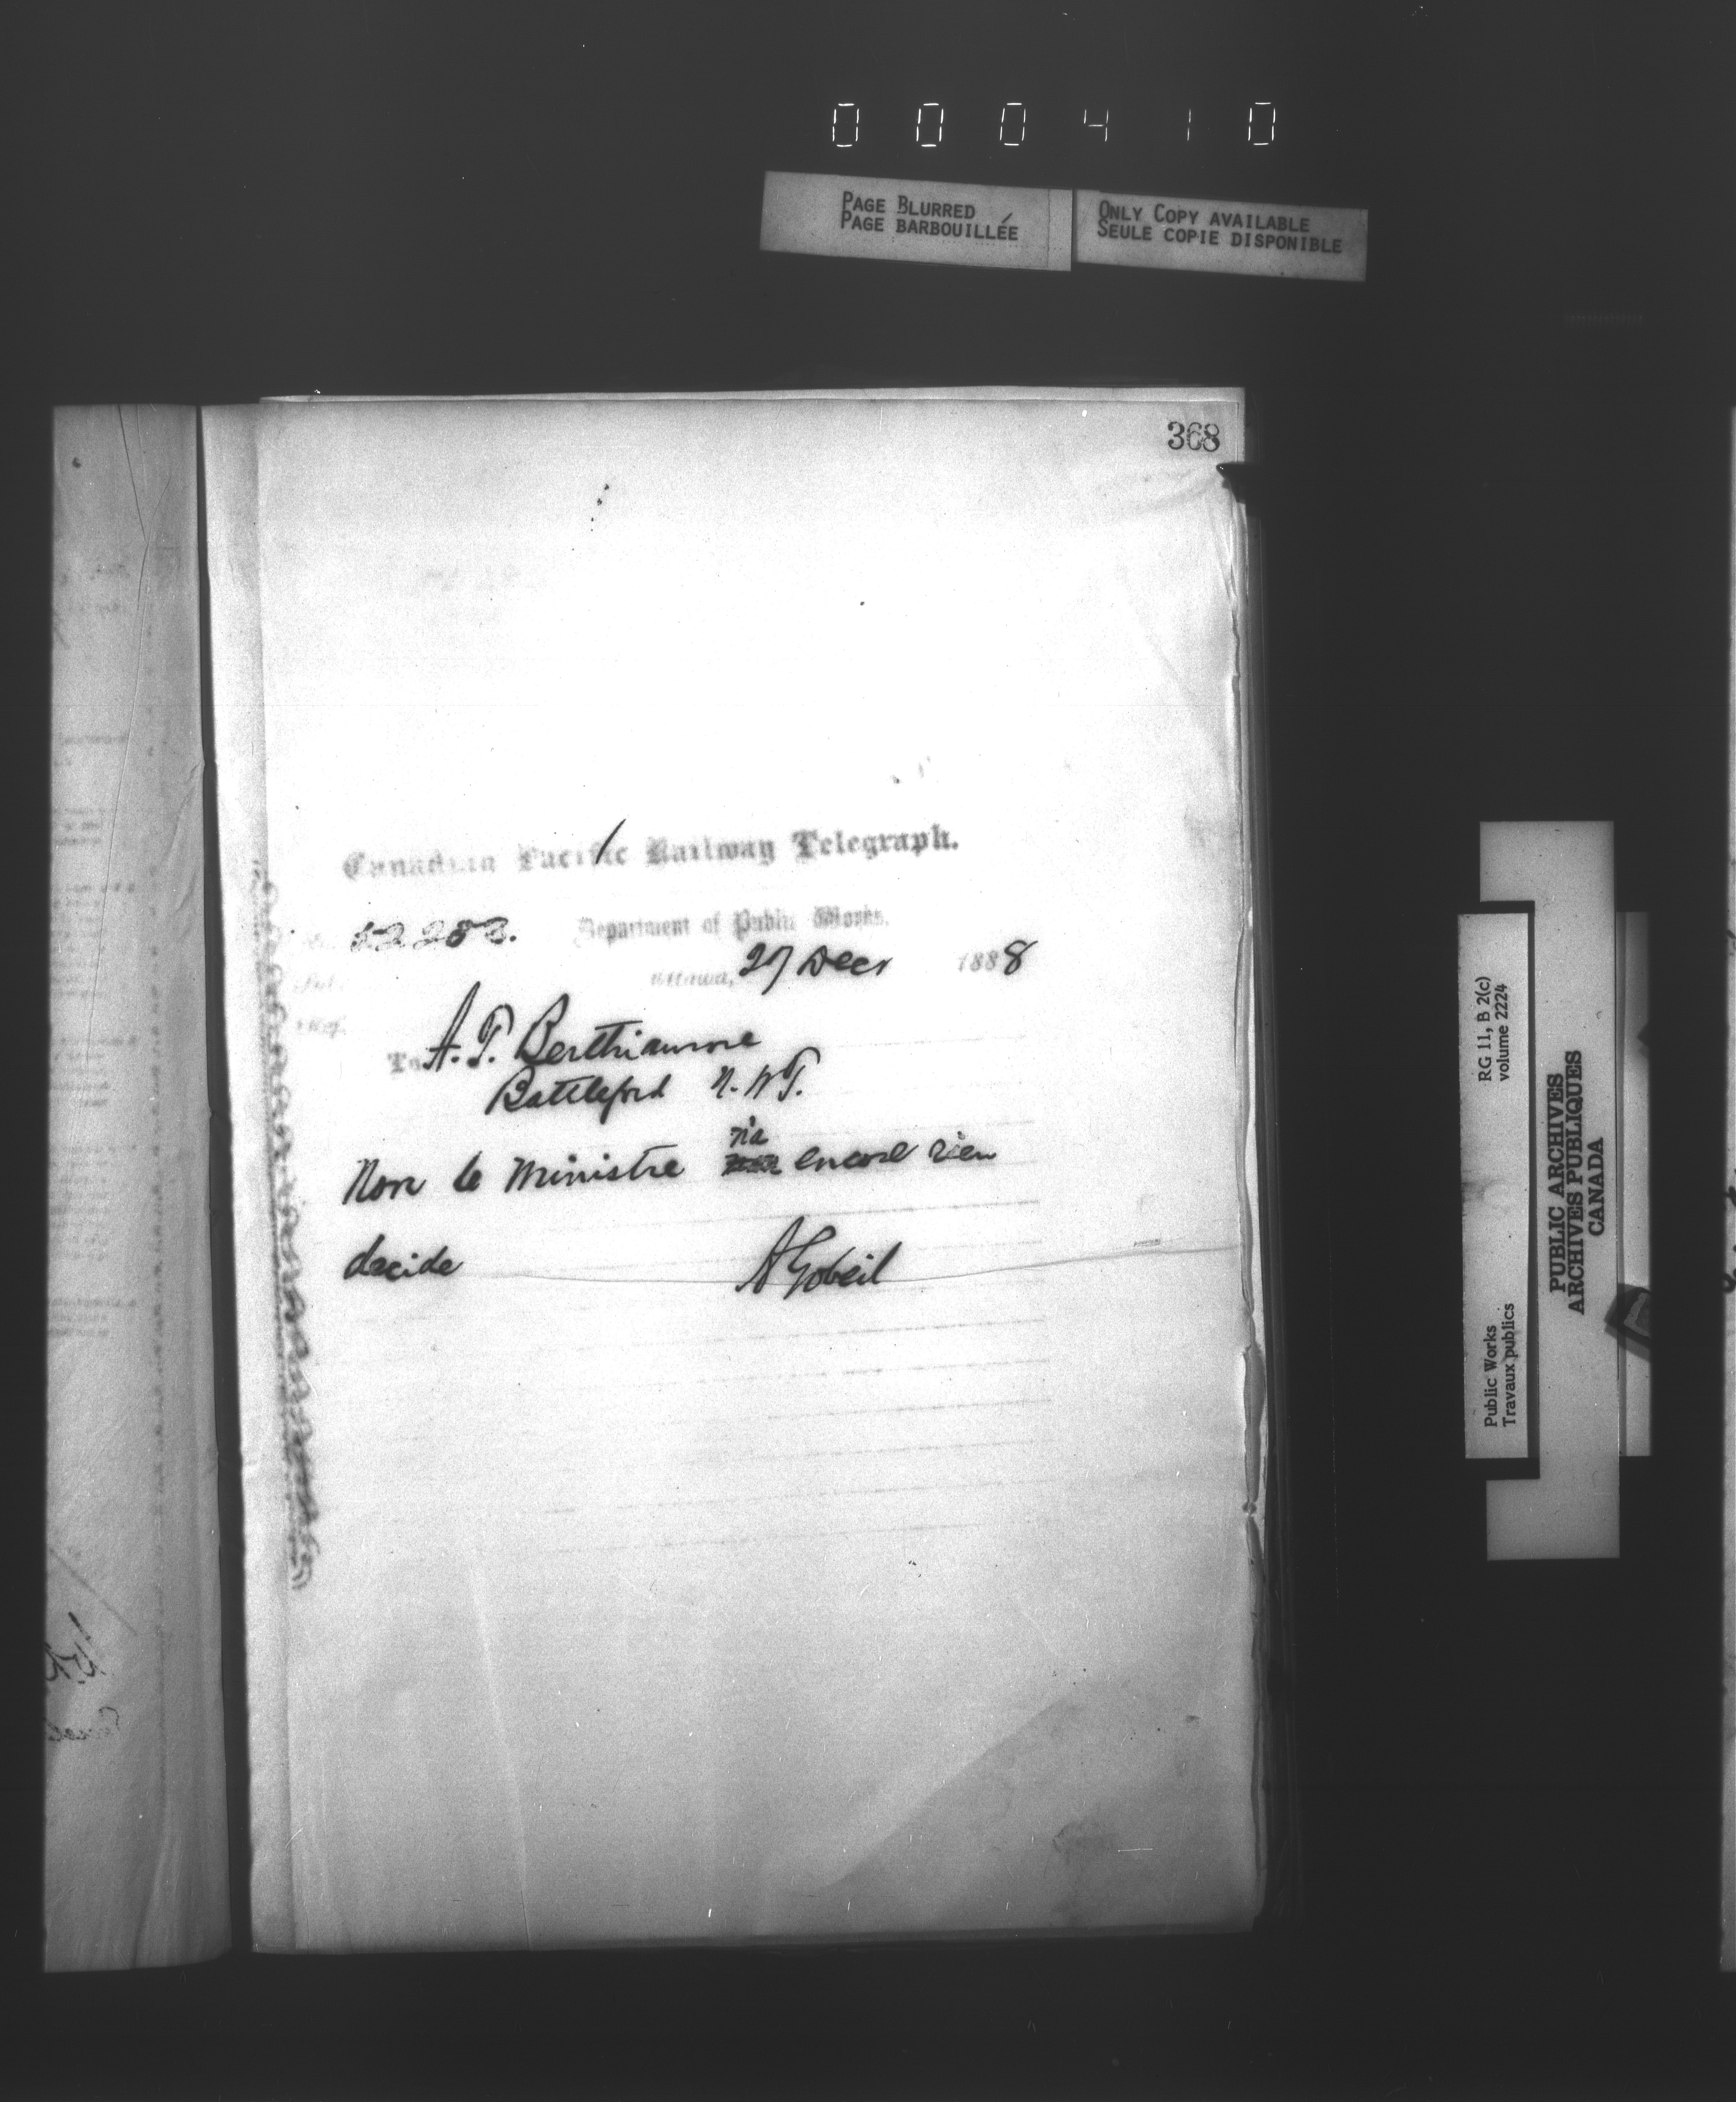 000410
PAGE BLURRED
PAGE BARBOUILLÉE
ONLY COPY AVAILABLE
SEULE COPIE DISPONIBLE
368
Canadian Pacific Railway Telegraph.
Department of Public Works.
Ottawa, 27 Decr 1888
To A. T. Berthiaume
Battleford N.W.T.
n'a
Non le Ministre encore rien
decide A Gobeil
RG 11, B 2(c)
volume 2224
Public Works
Travaux publics
PUBLIC ARCHIVES
ARCHIVES PUBLIQUES
CANADA